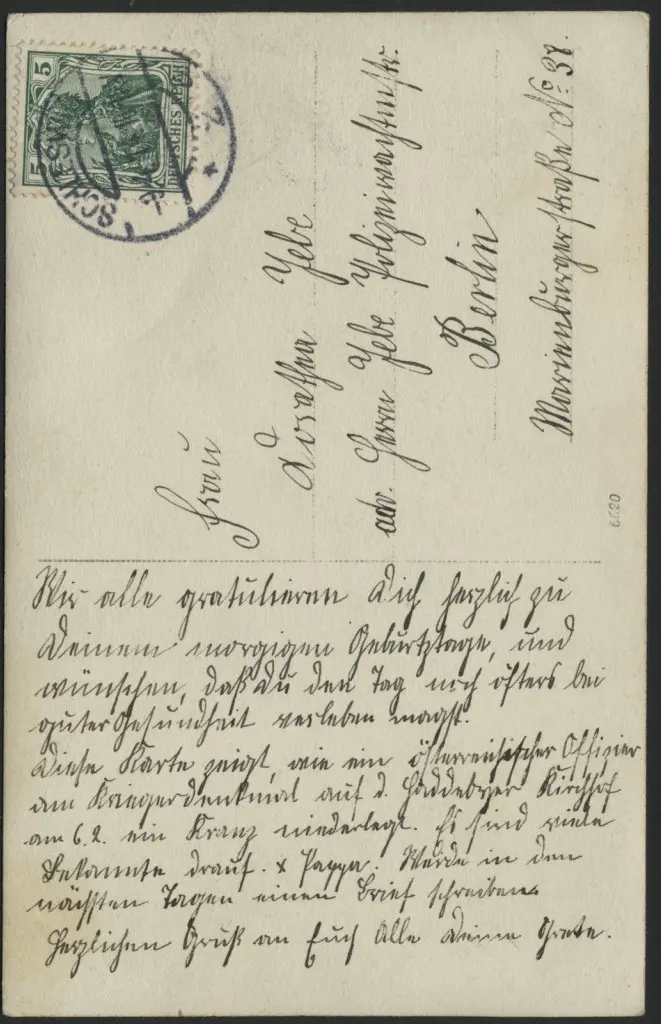 5 5
DEUTSCHES REICH
SCHLESWIG
Frau
Dorothea Jebe
adr. Herrn Jebe Polizeiwachtmstr.
Berlin
Marienburgerstraße No: 37.
6620
Wir alle gratulieren Dich herzlich zu
Deinem morgigen Geburtztage, und
wünschen, daß Du den Tag noch öfters bei
guter Gesundheit verleben magst.
Diese Karte zeigt, wie ein österreichischer Offizier
am Kriegerdenkmal auf d. Haddebyer Kirchhof
am 6.2. ein Kranz niederlegt. Es sind viele
Bekannte drauf. x Pappa. Werde in den
nächsten Tagen einen Brief schreiben.
Herzlichen Gruß an Euch Alle Deine Grete.